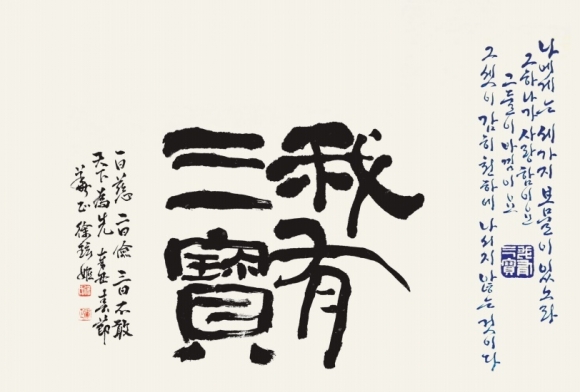 나에게는 세가지 보물이 있노라
그 하나가 사랑함이요
그 둘이 아낌이요
그 셋이 감히 천하에 나서지 않는 것이다
我有
三寶
我有
三寶
一曰慈 二曰儉 三曰不敢
天下為先 辛丑 春節
徐